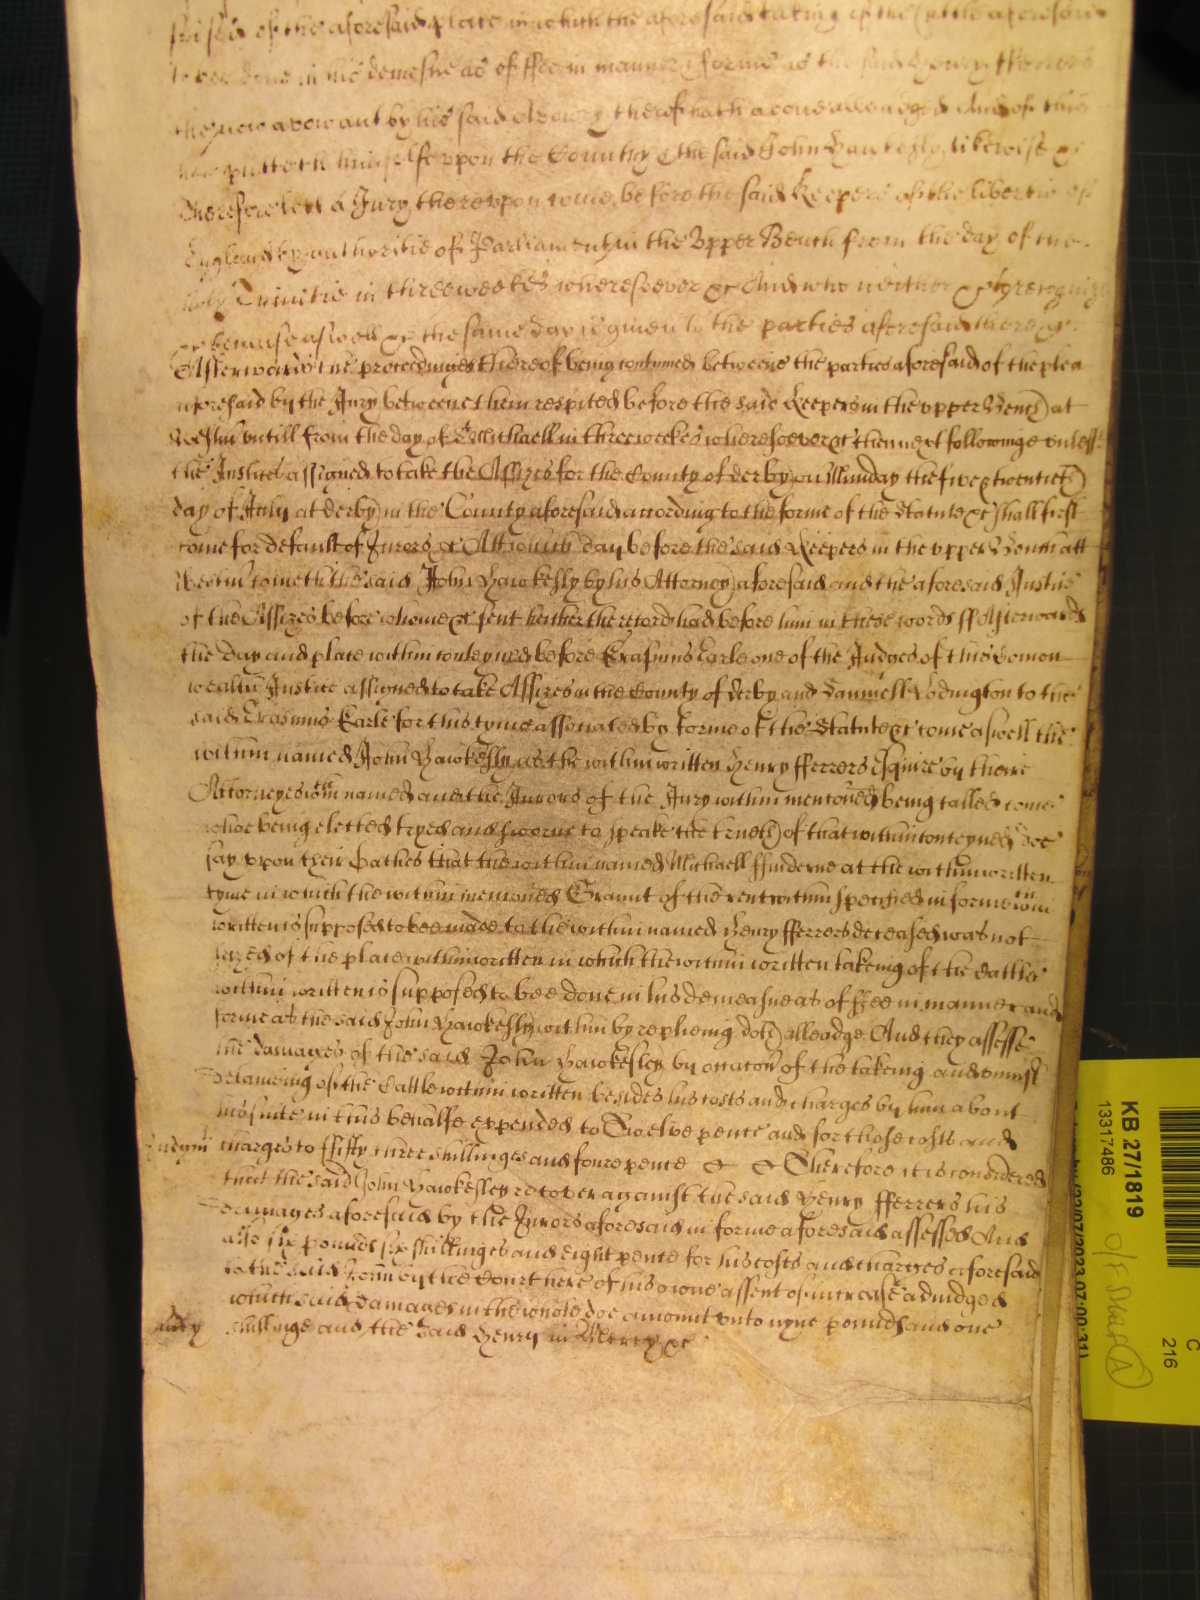 seised of the aforesaid place in which the aforesaid taking of the Cattle aforesaid
to bee done in his demesne as of ffee in manner & forme as the said Henry fferrers
the now avowant by his said Avowry thereof hath above alleadged And of this
hee putteth himselfe vpon the Country & the said John Hawkesly likewise &c
Therefore lett a Jury therevpon come before the said Keepers of the libertie of
England by authoritie of Parliament in the Vpper Bench from the day of the
holy Trinitie in three weekes wheresoever &c And who neither &c to recognize
&c because aswell &c the same day is given to the parties aforesaid there &c
Afterwards the proceedinges thereof being contynued betweene the parties aforesaid of the plea
aforesaid by the Jury betweene them respited before the said Keepers in the vpper Bench at
Westm vntill from the day of St Michaell in three weekes wheresoever &c then next followinge vnlesse
the Justices assigned to take the Assizes for the County of derby on Munday the five & twentieth
day of July at derby in the County aforesaid according to the forme of the Statute &c shall first
come for default of Jurors &c Att which day before the said Keepers in the vpper Bench att
Westm cometh the said John Hawkesly by his Attorney aforesaid and the aforesaid Justice
of the Assizes before whome &c sent hither the record had before him in these words ss Afterwards
the day and place within conteyned before Erasmus Earle one of the Judges of this Comon
wealth Justice assigned to take Assizes in the County of derby and Danniell Dodington to the
said Erasmus Earle for this tyme associated by forme of the Statute &c come aswell the
within named John Hawkesly as the within written Henry fferrers Esquire by theire
Attorneyes within named and the Jurors of the Jury within mentoned being called come
whoe being elected tryed and sworne to speake the trueth of that within conteyned doe
say vpon their Oathes that the within named Michaell ffinderne at the within written
tyme in which the within mentoned Graunt of the rent within specified in forme within
written is supposed to bee made to the within named Henry fferrers deceased was not
seized of the place within written in which the within written takeing of the Cattle
within written is supposed to bee done in his demeasne as of ffee in manner and
forme as the said John Hawkesly within by replieing doth alleadge And they assesse
the damages of the said John Hawkesley by occacon of the takeing and uniust
detaineing of the Cattle within written besides his costs and charges by him about
his suite in this behalfe expended to Twelve pence and for those costs and
Judgmt charges to ffifty three shillinges and foure pence & & Therefore it is considered
that the said John Hawkesley recover against the said Henry fferrers his
damages aforesaid by the Jurors aforesaid in forme aforesaid assessed And
also six poundes six shillinges and eight pence for his costs and charges aforesaid
to the said John by the Court here of his owne assent of increase adiudged
which said damages in the whole doe amount vnto nyne pounds and one
mercy shillinge and the said Henry in Mercy &c
KB 27/1819
13317486
C
216